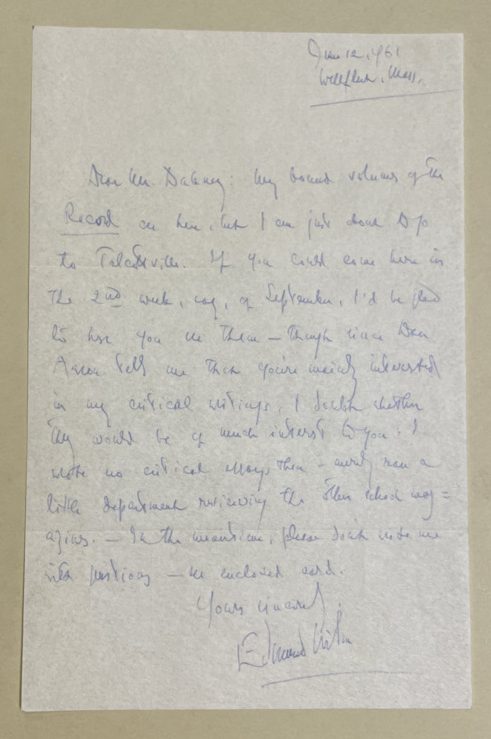 June 12, 1961
Wellfleet, Mass.
Dear Mr. Dabney: My bound volumes of the
Record are here, but I am just about to go
to Talcottville. If you could come here in
the 2nd week, say, of September, I'd be glad
to have you see them – though since Dan
Aaron tells me that you're mainly interested
in my critical writings, I doubt whether
they would be of much interest to you. I
wrote no critical essays then – merely ran a
little department reviewing the other school mag=
azines. – In the meantime, please don't write me
with questions – see enclosed card.
Yours sincerely,
Edmund Wilson